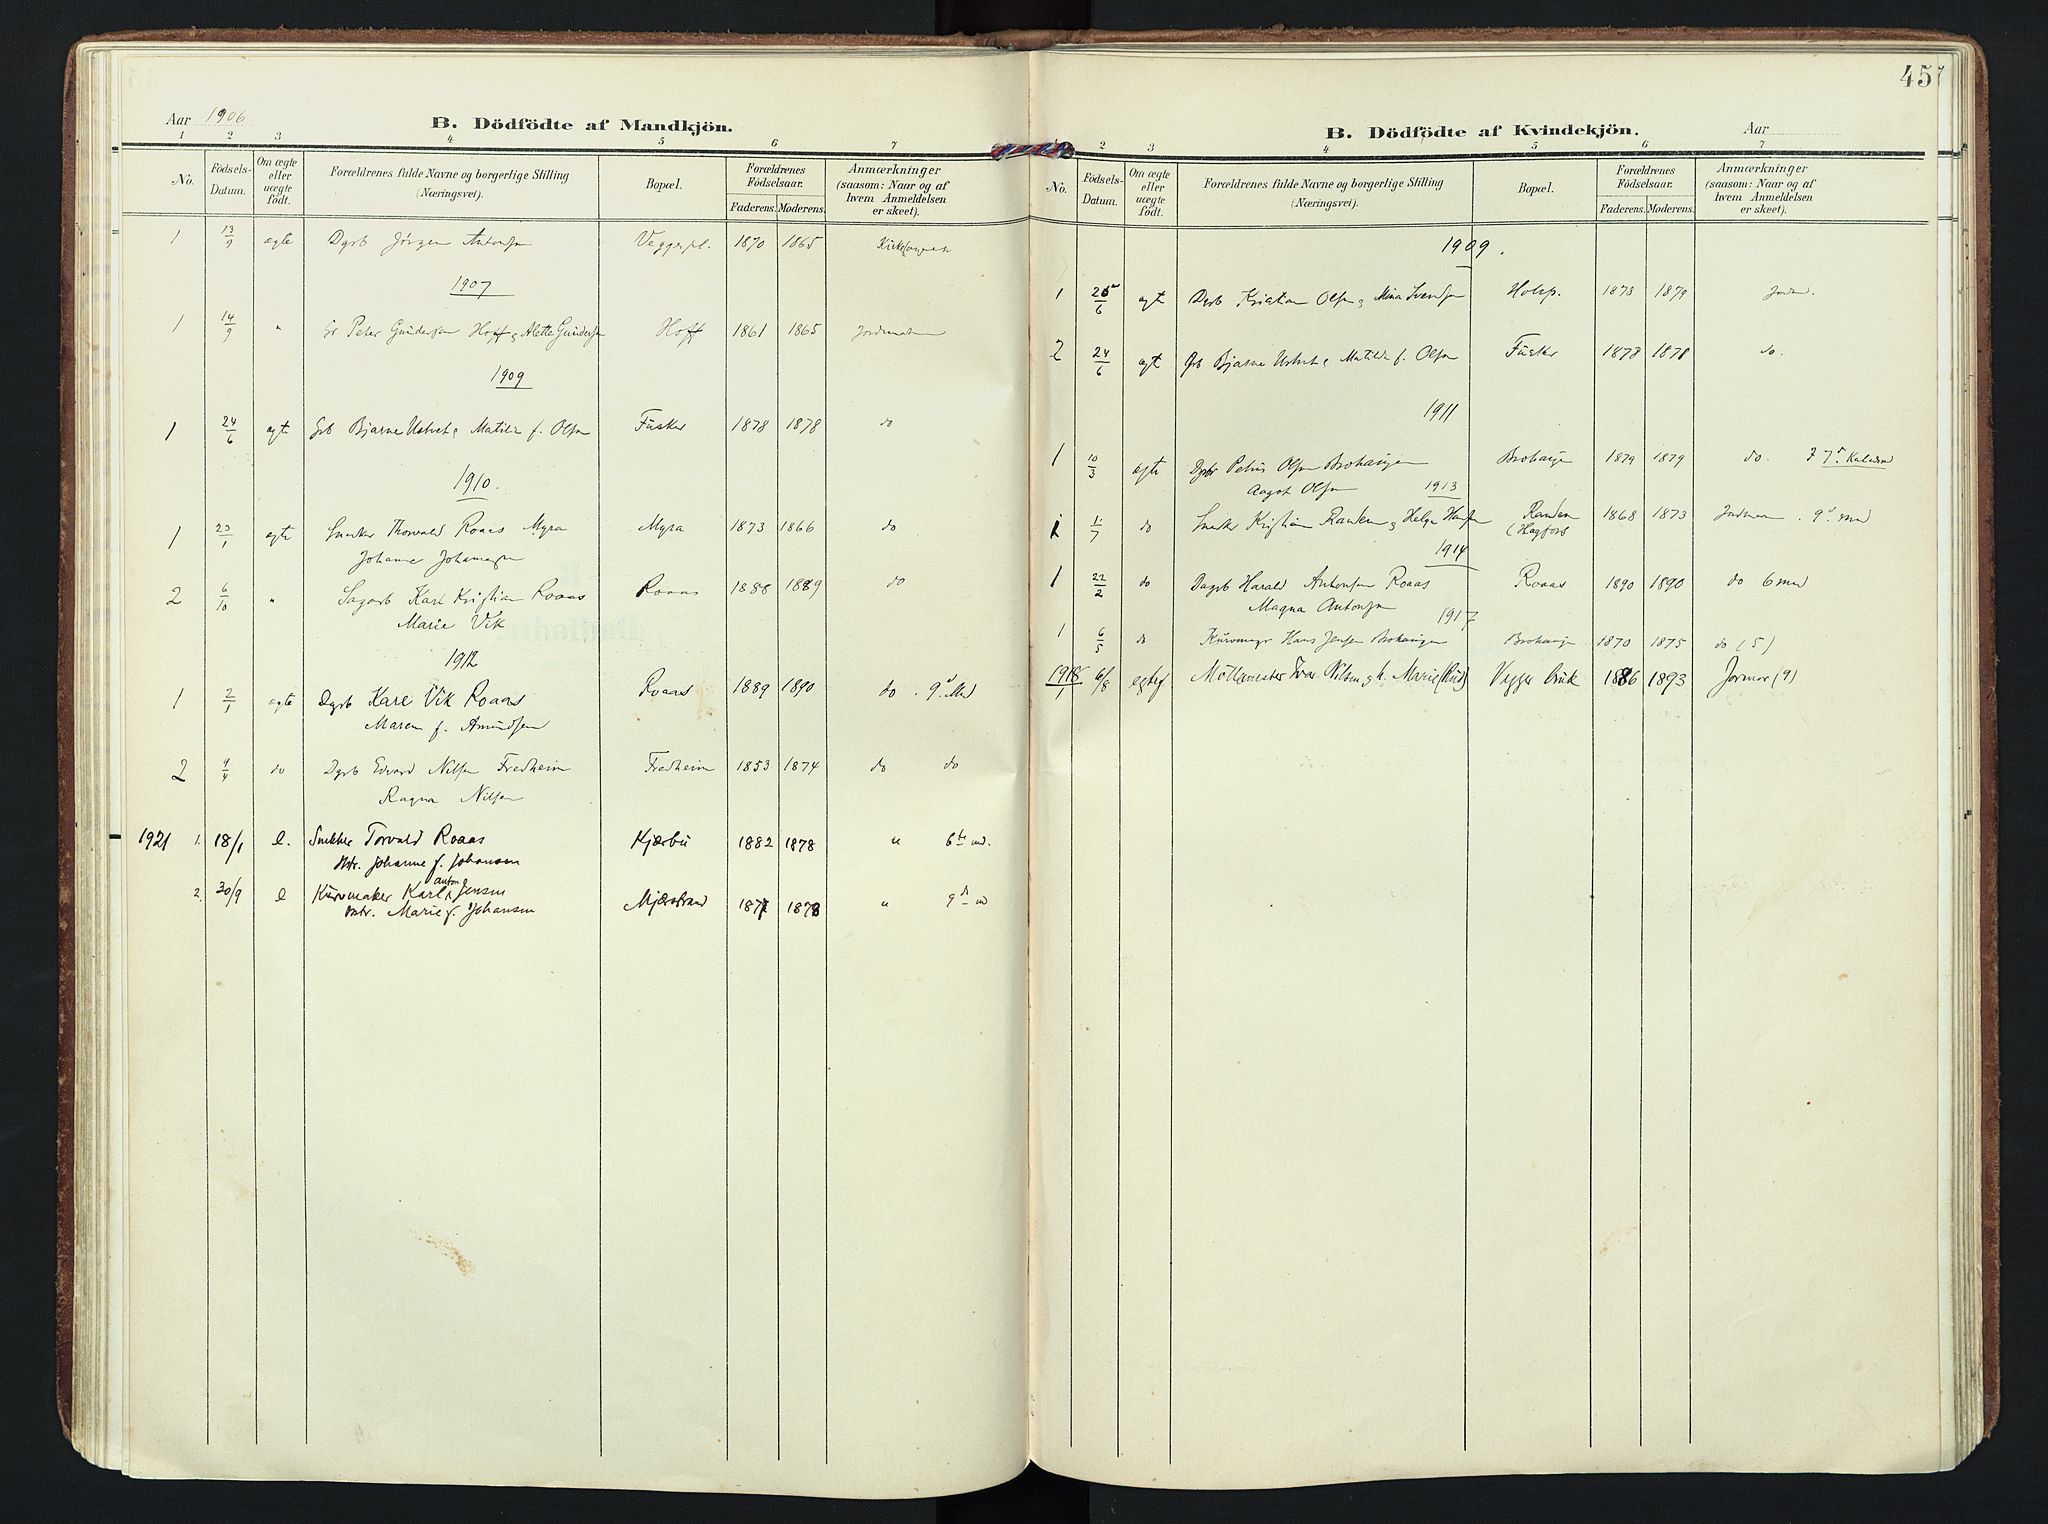 Aar 1906
B. Dödfödte af Mandkjön.
1 2 3 4 5 6 7
No.
Födsels-Datum.
Om ægte eller uægte födt.
Forældrenes fulde Navne og borgerlige Stilling (Næringsvei).
Bopæl.
Forældrenes Födselsaar.
Faderens. Moderens.
Anmærkninger (saasom: Naar og af hvem Anmeldelsen er skeet).
1 13/9 ægte Dgrb Jörgen Antonsen Veggerpl. 1870 1865
1907
1 14/9 " Gr Peter Gundersen Hoff & Alette Gundersen Hoff 1861 1865 Jordmoderen
1909
1 24/6 ægte Grb Bjarne & Matilde f. Olsen Fusker 1878 1878 do
1910.
1 23/1 ægte Snedker Thorvald Roaas Myra Myra 1873 1866 do
Johanne Johannesen
2 6/10 " Sagarb Karl Kristian Roaas Roaas 1888 1889 do
Marie Vik
1912
1 2/1 ægte Dgrb Karl Vik Roaas Roaas 1889 1890 do . 9d Md
Maren f. Amundsen
2 9/4 do Dgrb Edvard Nilsen Fredheim Fredheim 1853 1874 do do
Ragna Nilsen
1921 1. 18/1 e. Snekker Torvald Roaas Kjærbu 1882 1878 " 6te md.
Htr. Johanne f. Johansen
anton
2. 30/9 e Kurvmaker Karl Jensen Mjærstrand 1877 1878 " 9d md
Htr. Marie f. Johansen
457
B. Dödfödte af Kvindekjön.
Aar
2 3 4 5 6 7
No.
Födsels-Datum.
Om ægte eller uægte födt.
Forældrenes fulde Navne og borgerlige Stilling (Næringsvei).
Bopæl.
Forældrenes Födselsaar.
Faderens. Moderens.
Anmærkninger (saasom: Naar og af hvem Anmeldelsen er skeet).
1909.
1 25/6 ægte Dgrb Kristian Olsen & Mina Svendsen Holsp. 1873 1879 Jordm.
2 24/6 ægt Grb Bjarne & Matilde f. Olsen Fusker 1878 1878 do.
1911
1 10/3 ægte Dgrbr Petrus Olsen Brohaugen Brohaugen 1879 1879 do.
Aagot Olsen
1913
1 1/7 do Snekker Kristian Randen & Helga Hansen Randen (Hagfors 1868 1873 Jordmor . 9d md
1914
1 22/2 do Dagrb Harald Antonsen Roaas Roaas 1890 1890 do 6 md
Magna Antonsen
1917
1 6/5 do Kurvmagr Hans Jensen Brohaugen Brohaugen 1870 1875 do (5)
1918 1 6/8 egtef Möllemester Ivar Nilsen g.h. Marie (Rud) Vegger bruk 1886 1893 Jormor (9)